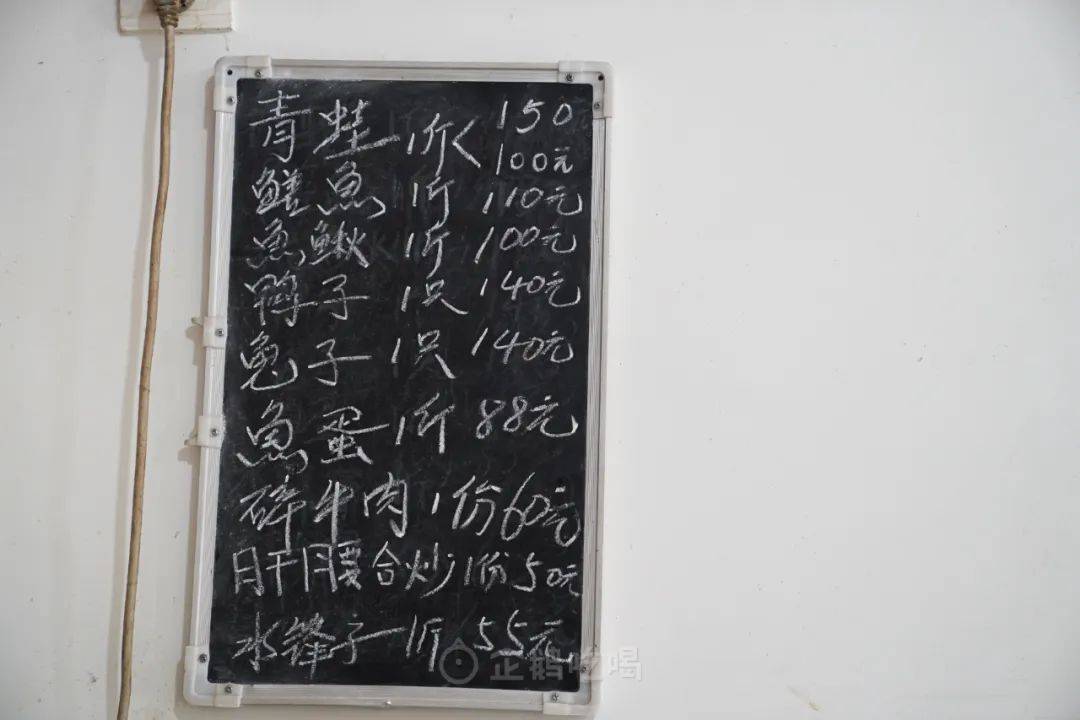 青蛙1斤< 150
100元
鳝魚1斤110元
魚鳅1斤100元
鸭子1只140元
兔子1只140元
魚蛋1斤88元
碎牛肉1份60元
肝腰合炒1份50元
水锋子1斤55元
企鹅吃喝